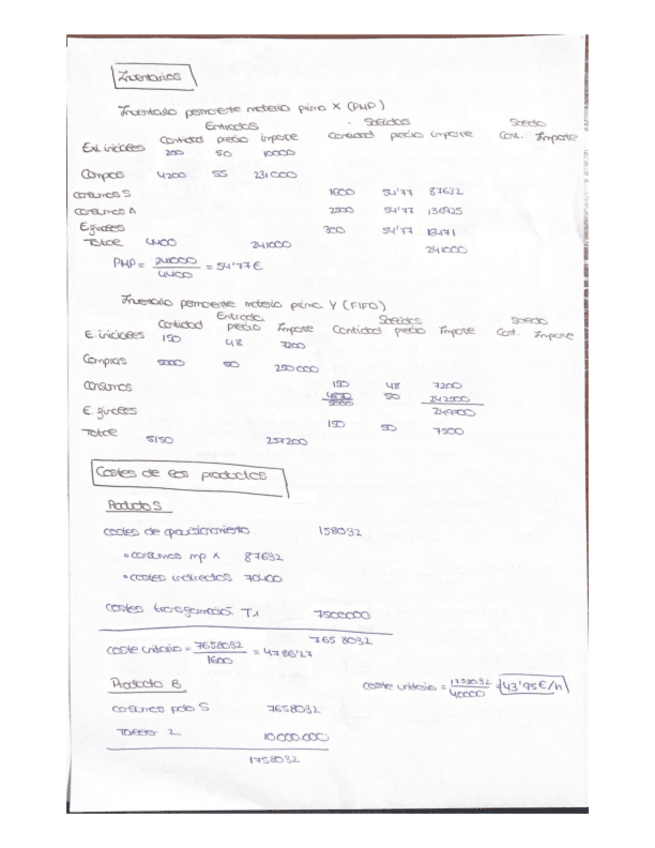 Inventarios
Inventario permanente materia prima X (PMP)
Entradas Salidas Saldo
Cantidad precio importe Cantidad precio importe Cant. Importe
Exi. iniciales 200 50 10000
Compras 4200 55 231000
consumos S 1600 54'77 87632
consumos A 2500 54'77 136925
E. finales 300 54'77
Total 4400 241000 241000
PMP = 241000 / 4400 = 54'77€
Inventario permanente materia prima Y (FIFO)
Entrada Salidas Saldo
Cantidad precio Importe Cantidad precio Importe Cant. Importe
E. iniciales 150 48 7200
Compras 5000 50 250000
consumos 150 48 7200
4850 50 242500
5000 249700
E. finales 150 50 7500
Total 5150 257200
Costes de los productos
Producto S
costes de aprovisionamiento 158032
• consumos mp X 87632
• costes indirectos 70400
costes transformación T1 7500000
7658032
coste unitario = 7658032 / 1600 = 4786'27
Producto B
coste unitario = 1758032 / 40000 = 43'95€/h
consumos pdo S 7658032
2 10.000.000
1758032